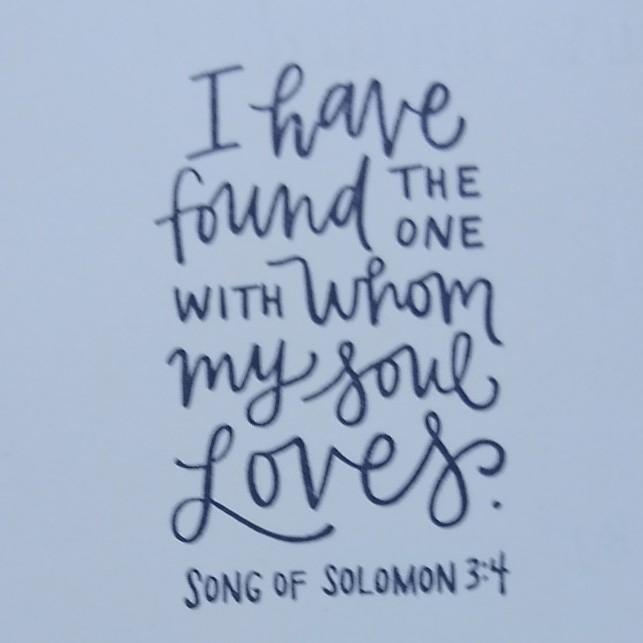 I have
found THE
ONE
WITH whom
my soul
Loves.
SONG OF SOLOMON 3:4